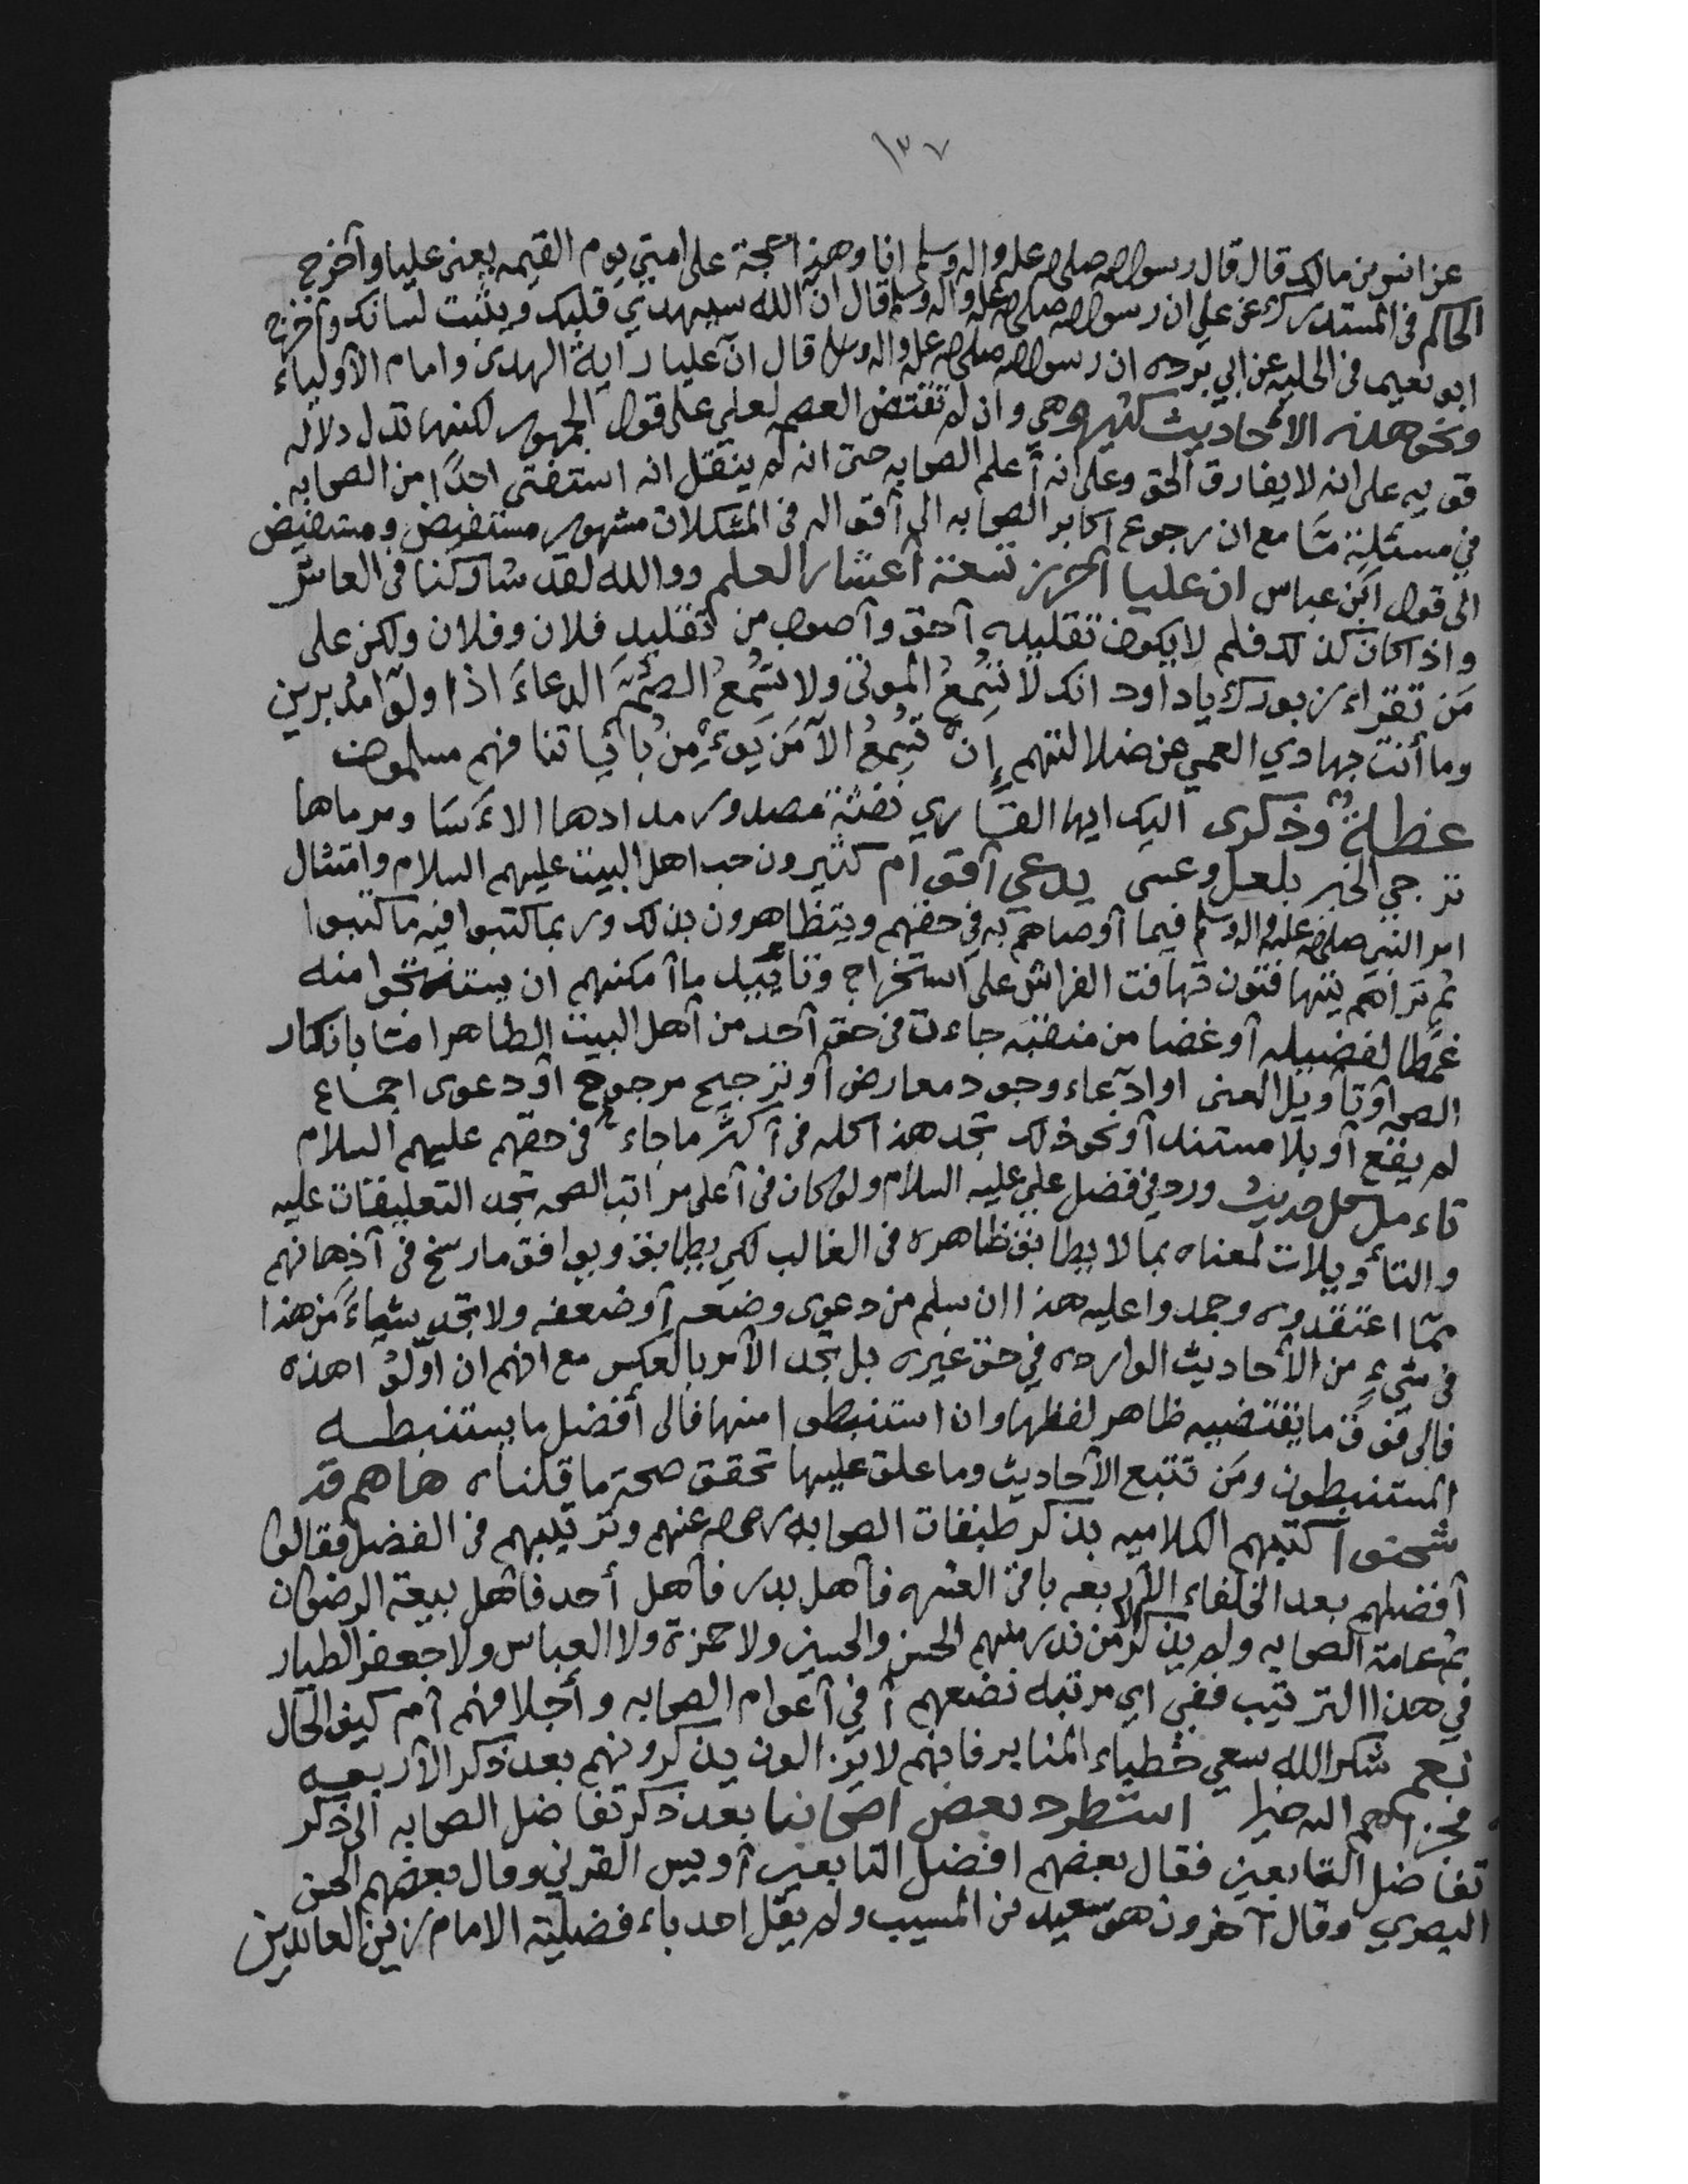 ١٣٧
عن انس بن مالك قال قال رسول الله صلى الله عليه واله وسلم انا وهذا حجة على امتي يوم القيمه يعني عليا وأخرج
الحاكم في المستدرك عن علي ان رسول الله صلى الله عليه واله وسلم قال ان الله سيهدي قلبك ويثبت لسانك وأخرج
ابو نعيم في الحليه عن ابي برده ان رسول الله صلى الله عليه واله وسلم قال ان عليا راية الهدى وامام الأولياء
ونحو هذه الأحاديث كثيره وهي وان لم تقتض العصمه لعلي على قول الجمهور لكنها تدل دلاله
قويه على انه لا يفارق الحق وعلى انه أعلم الصحابه حتى انه لم ينقل انه استفتى احدًا من الصحابه
في مسئلة مّا مع ان رجوع اكابر الصحابه الى أقواله في المشكلات مشهور مستفيض ومستفيض
الى قول ابن عباس ان عليا احرز تسعة أعشار العلم ووالله لقد شاركنا في العاشر
واذا كان كذلك فلم لا يكون تقليده أحق وأصوب من تقليد فلان وفلان ولكن على
مَن تقراء زبورك ياداود انك لا تُسْمِعُ الموتى ولا تُسْمِعُ الصُّمَّ الدعاءَ اذا ولّوا مدبرين
وما أنت بهادي العمي عن ضلالتهم إِن تُسْمِعُ الاّ مَن يُوءْمِنُ بأياتنا فهم مسلمون
عظة وذكرى اليك ايها القاري نفثة مصدور مدادها الاءَسَا ومرماها
ترجي الخبر بلعل وعسى يدعي أقوام كثيرون حب اهل البيت عليهم السلام وامتثال
امر النبي صلى الله عليه واله وسلم فيما أوصاهم به في حقهم ويتظاهرون بذلك وربما كتبوا فيه ما كتبوا
ثم تراهم يتهافتون تهافت الفراش على استخراج وتأييد ما أمكنهم ان يستنتجوا منه
غمطا لفضيله أو غضا من منقبه جاءت في حق أحد من أهل البيت الطاهر امّا بانكار
الصحه أو تأويل المعنى او ادّعاء وجود معارض أو ترجيح مرجوح أو دعوى اجماع
لم يقع أو بلا مستند أو نحو ذلك تجد هذا كله في أكثر ما جاء في حقهم عليهم السلام
تاءمل كل حديث ورد في فضل علي عليه السلام ولو كان في أعلى مراتب الصحه تجد التعليقات عليه
والتأويلات لمعناه بما لا يطابق ظاهره في الغالب لكي يطابق ويوافق ما رسخ في أذهانهم
ممّا اعتقدوه وجمدوا عليه هذا ان سلم من دعوى وضعه أو ضعفه ولا تجد شيئاءً من هذا
في شيءٍ من الأحاديث الوارده في حق غيره بل تجد الأمر بالعكس مع انهم ان اوّلوا هذه
فالى فوق ما يقتضيه ظاهر لفظها وان استنبطوا منها فالى أفضل ما يستنبطه
المستنبطون ومَن تتبع الأحاديث وما علق عليها تحقق صحة ما قلناه هاهم قد
شحنوا كتبهم الكلاميه بذكر طبقات الصحابه رضي الله عنهم وترتيبهم في الفضل فقالوا
أفضلهم بعد الخلفاء الأربعه باقي العشره فأهل بدر فأهل أحد فأهل بيعة الرضوان
ثم عامة الصحابه ولم يذكر الا من ندر منهم الحسن والحسين ولا حمزة ولا العباس ولا جعفر الطيار
في هذا الترتيب ففي اي مرتبه نضعهم أفي أعوام الصحابه وأجلافهم أم كيف الحال
نعم شكر الله سعي خطباء المنابر فانهم لا يزالون يذكرونهم بعد ذكر الأربعه
فجزاهم الله خيرا استطرد بعض اصحابنا بعد ذكر تفاضل الصحابه الى ذكر
تفاضل التابعين فقال بعضهم افضل التابعين أويس القرني وقال بعضهم الحسن
البصري وقال آخرون هو سعيد بن المسيب ولم يقل احد باءفضلية الامام زين العابدين